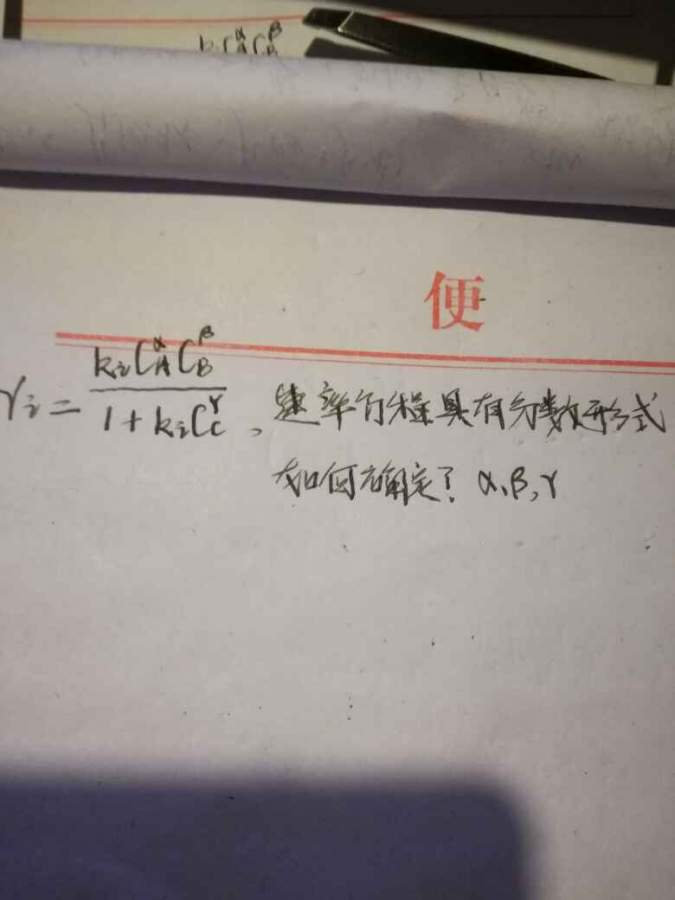 k C_A^α C_B^β
便
r_i = \frac{k_i C_A^α C_B^β}{1 + k_i C_C^γ}, 速率方程具有分数形式
如何确定? α、β、γ